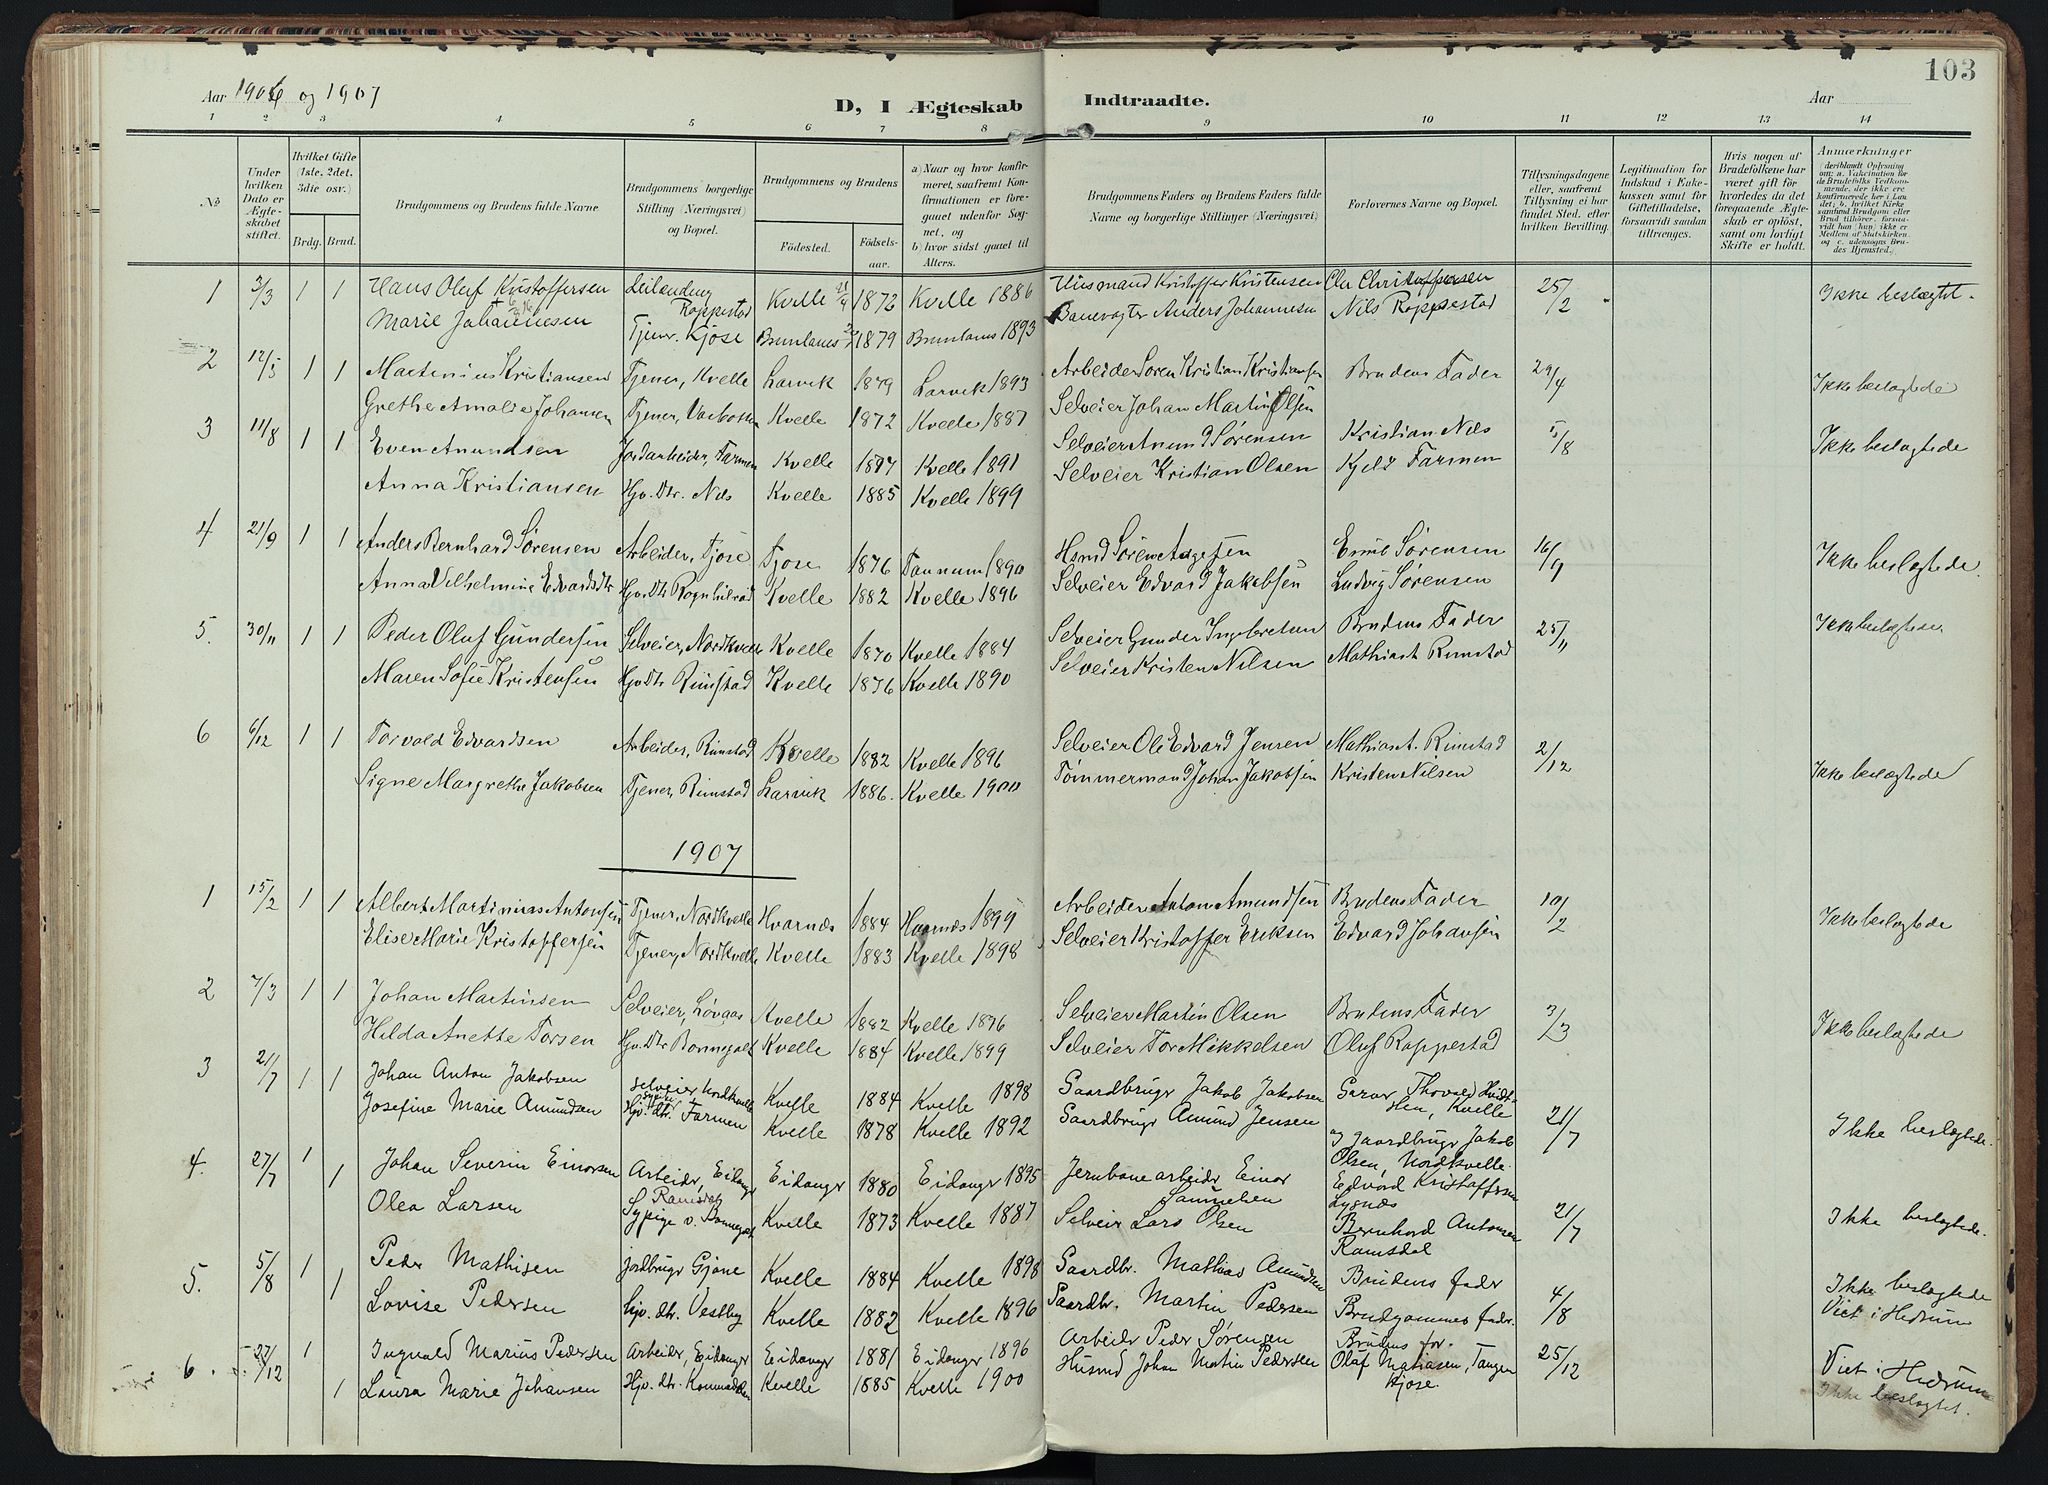 103
Aar 1906 og 1907
D, I Ægteskab Indtraadte.
Aar
1 2 3 4 5 6 7 8 9 10 11 12 13 14
No
Under hvilken Dato er Ægteskabet stiftet.
Hvilket Gifte (1ste, 2det, 3die osv.)
Brdg. Brud.
Brudgommens og Brudens fulde Navne
Brudgommens borgerlige Stilling (Næringsvei) og Bopæl.
Brudgommens og Brudens
Fødested. Fødselsaar.
a) Naar og hvor konfirmeret, saafremt Konfirmationen er foregaaet udenfor Sognet, og
b) hvor sidst gaaet til Alters.
Brudgommens Faders og Brudens Faders fulde Navne og borgerlige Stillinger (Næringsvei)
Forlovernes Navne og Bopæl.
Tillysningsdagene eller, saafremt Tillysning ei har fundet Sted, efter hvilken Bevilling.
Legitimation for Indskud i Enkekassen samt for Giftetilladelse, forsaavidt saadan tiltrænges.
Hvis nogen af Brudefolkene har været gift før hvorledes da det foregaaende Ægteskab er opløst, samt om lovligt Skifte er holdt.
Anmærkninger
1 3/3 1 1 Hans Oluf Kristoffersen Leilænding Roppestad Kvelle 1872 Kvelle 1886 Husmand Kristoffer Kristensen Chr Christoffersen 25/2 Ikke beslægtet.
Marie Johannesen Tjener. Kjose Brunlanes 1879 Brunlanes 1893 Banevogter Anders Johannesen Nils Roppestad
2 12/5 1 1 Martinius Kristiansen Tjener, Kvelle Larvik 1879 Larvik 1893 Arbeider Søren Kristian Kristiansen Brudens Fader 29/4 Ikke beslægtede
Grethe Amalie Johansen Tjener, Kvelle 1872 Kvelle 1887 Selveier Johan Martin Olsen
3 11/8 1 1 Even Amundsen Jordarbeider, Farmen Kvelle 1877 Kvelle 1891 Selveier Amund Sørensen Kristian Næs 5/8 Ikke beslægtede
Anna Kristiansen Hjv. Dtr. Næs Kvelle 1885 Kvelle 1899 Selveier Kristian Olsen Kjeld Farmen
4 21/9 1 1 Anders Bernhard Sørensen Arbeider, Tjose Tjose 1876 Tannum 1890 Hsmd Søren Aagesen Emil Sørensen 16/9 Ikke beslægtede.
Anna Vilhelmine Edvardsdtr Hjv. Dtr Rognhilrød Kvelle 1882 Kvelle 1896 Selveier Edvard Jakobsen Ludvig Sørensen
5. 30/11 1 1 Peder Oluf Gundersen Selveier, Nordkvelle Kvelle 1870 Kvelle 1884 Selveier Gunder Ingebretsen Brudens Fader 25/11 Ikke beslægtede
Maren Sofie Kristensen Hjv. Dtr Rimstad Kvelle 1876 Kvelle 1890 Selveier Kristen Nilsen Mathias A. Rimstad
6 6/12 1 1 Torvald Edvardsen Arbeider, Rimstad Kvelle 1882 Kvelle 1896 Selveier Ole Edvard Jensen Mathias A. Rimstad 2/12 Ikke beslægtede
Signe Margrethe Jakobsen Tjener, Rimstad Larvik 1886. Kvelle 1900 Tømmermand Johan Jakobsen Kristen Nilsen
1907
1 15/2 1 1 Albert Martinius Antonsen Tjener, Nordkvelle Hvarnæs 1884 Hvarnæs 1899 Arbeider Anton Amundsen Brudens Fader 10/2 Ikke beslægtede
Elise Marie Kristoffersen Tjener, Nordkvelle Kvelle 1883 Kvelle 1898 Selveier Kristoffer Eriksen Edvard Johansen
2 7/3 1 1 Johan Martinsen Selveier, Løvaas Kvelle 1882 Kvelle 1896 Selveier Martin Olsen Brudens Fader 3/3 Ikke beslægtede
Hilda Anette Torsen Hjv. Dtr Bonnegolt Kvelle 1884 Kvelle 1899 Selveier Tor Mikkelsen Oluf Roppestad
3 21/7 1 1 Johan Anton Jakobsen Selveier, Nordkvelle Kvelle 1884 Kvelle 1898 Gaardbrugr Jakob Jakobsen Garver Thovald Hvidsten, Kvelle 21/7 Ikke beslægtede.
Josefine Marie Amundsen Hjv. dtr. Farmen Kvelle 1878 Kvelle 1892 Gaardbrugr Amund Jensen og gaardbrugr Jakob Olsen, Nordkvelle.
4. 27/7 1 1 Johan Severin Einorsen Arbeidr, Eidanger Eidangr 1880 Eidangr 1895 Jernbanearbeidr Einor Samuelsen Edvard Kristoffersen Lysnæs 21/7 Ikke beslægtede.
Olea Larsen Ramsdal Sypige v. Bonnegolt Kvelle 1873 Kvelle 1887 Selveir Lars Olsen Bernhard Antonsen Ramsdal
5. 5/8 1 1 Peder Mathisen jordbrugr Gjone Kvelle 1884 Kvelle 1898 Gaardbr. Mathias Amundsen Brudens fader 4/8 Ikke beslægtede
Lovise Pedersen Hjv. dtr. Vestby Kvelle 1882 Kvelle 1896 Gaardbr. Martin Pedersen Brudgommens fader. Viet i Hedrum
6. 27/12 1 1 Ingvald Marius Pedersen Arbeidr, Eidanger Eidangr 1881 Eidangr 1896 Arbeidr Peder Sørensen Brudens far. 25/12 Viet i Hedrum
Laura Marie Johansen Hjv. dtr. Kvelle 1885 Kvelle 1900 Husmd Johan Martin Pedersen Olaf Matiasen, Tangen Kjose. Ikke beslægtet.